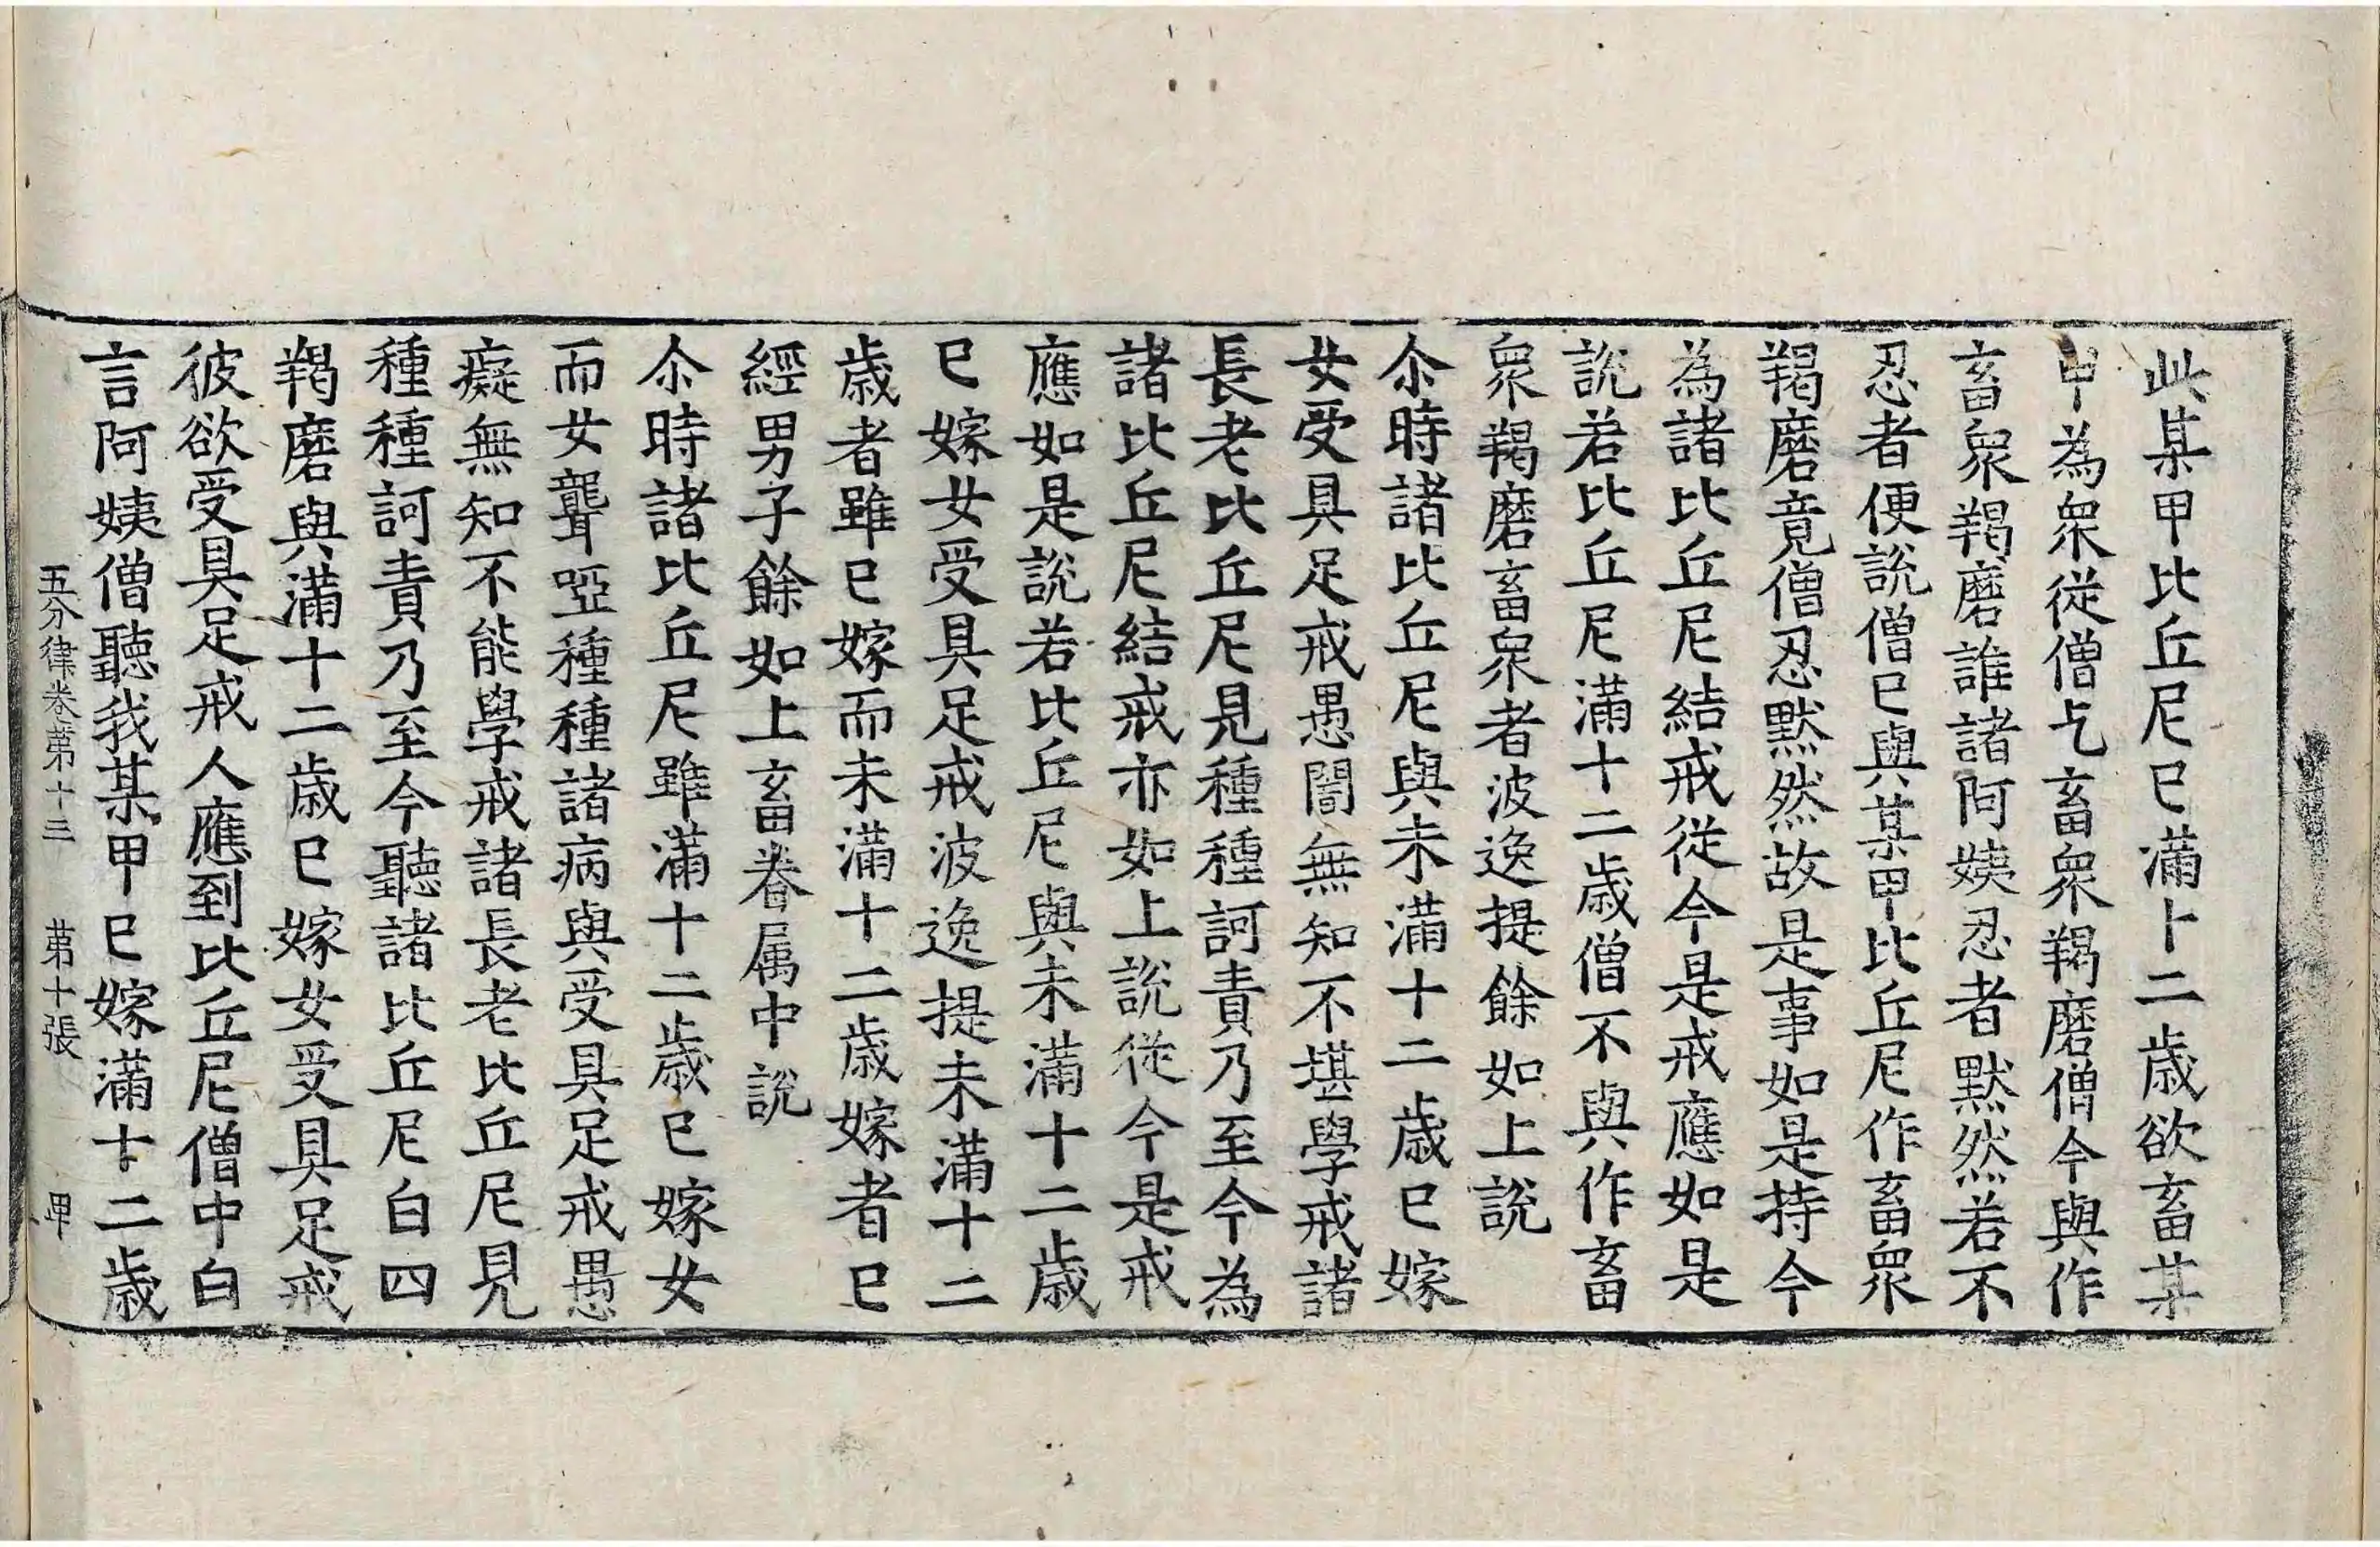 此某甲比丘尼已滿十二歲欲畜某
甲為衆從僧乞畜衆羯磨僧今與作
畜衆羯磨誰諸阿姨忍者默然若不
忍者便說僧已與某甲比丘尼作畜衆
羯磨竟僧忍默然故是事如是持今
為諸比丘尼結戒從今是戒應如是
說若比丘尼滿十二歲僧不與作畜
衆羯磨畜衆者波逸提餘如上說
尒時諸比丘尼與未滿十二歲已嫁
女受具足戒愚闇無知不堪學戒諸
長老比丘尼見種種訶責乃至今為
諸比丘尼結戒亦如上說從今是戒
應如是說若比丘尼與未滿十二歲
已嫁女受具足戒波逸提未滿十二
歲者雖已嫁而未滿十二歲嫁者已
經男子餘如上畜眷属中說
尒時諸比丘尼雖滿十二歲已嫁女
而女聾瘂種種諸病與受具足戒愚
癡無知不能學戒諸長老比丘尼見
種種訶責乃至今聽諸比丘尼白四
羯磨與滿十二歲已嫁女受具足戒
彼欲受具足戒人應到比丘尼僧中白
言阿姨僧聽我某甲已嫁滿十二歲
五分律卷第十三 苐十張